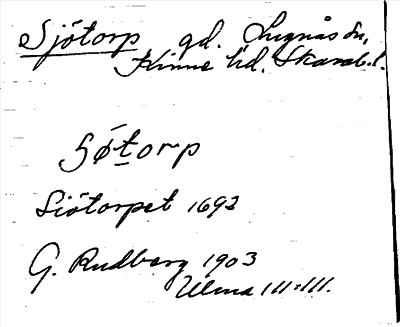 Sjötorp gd. Lugnås sn,
Kinne hd. Skarab. l.
Sötorp
Siötorpet 1692
G. Rudberg 1903
Ulma 111:111.